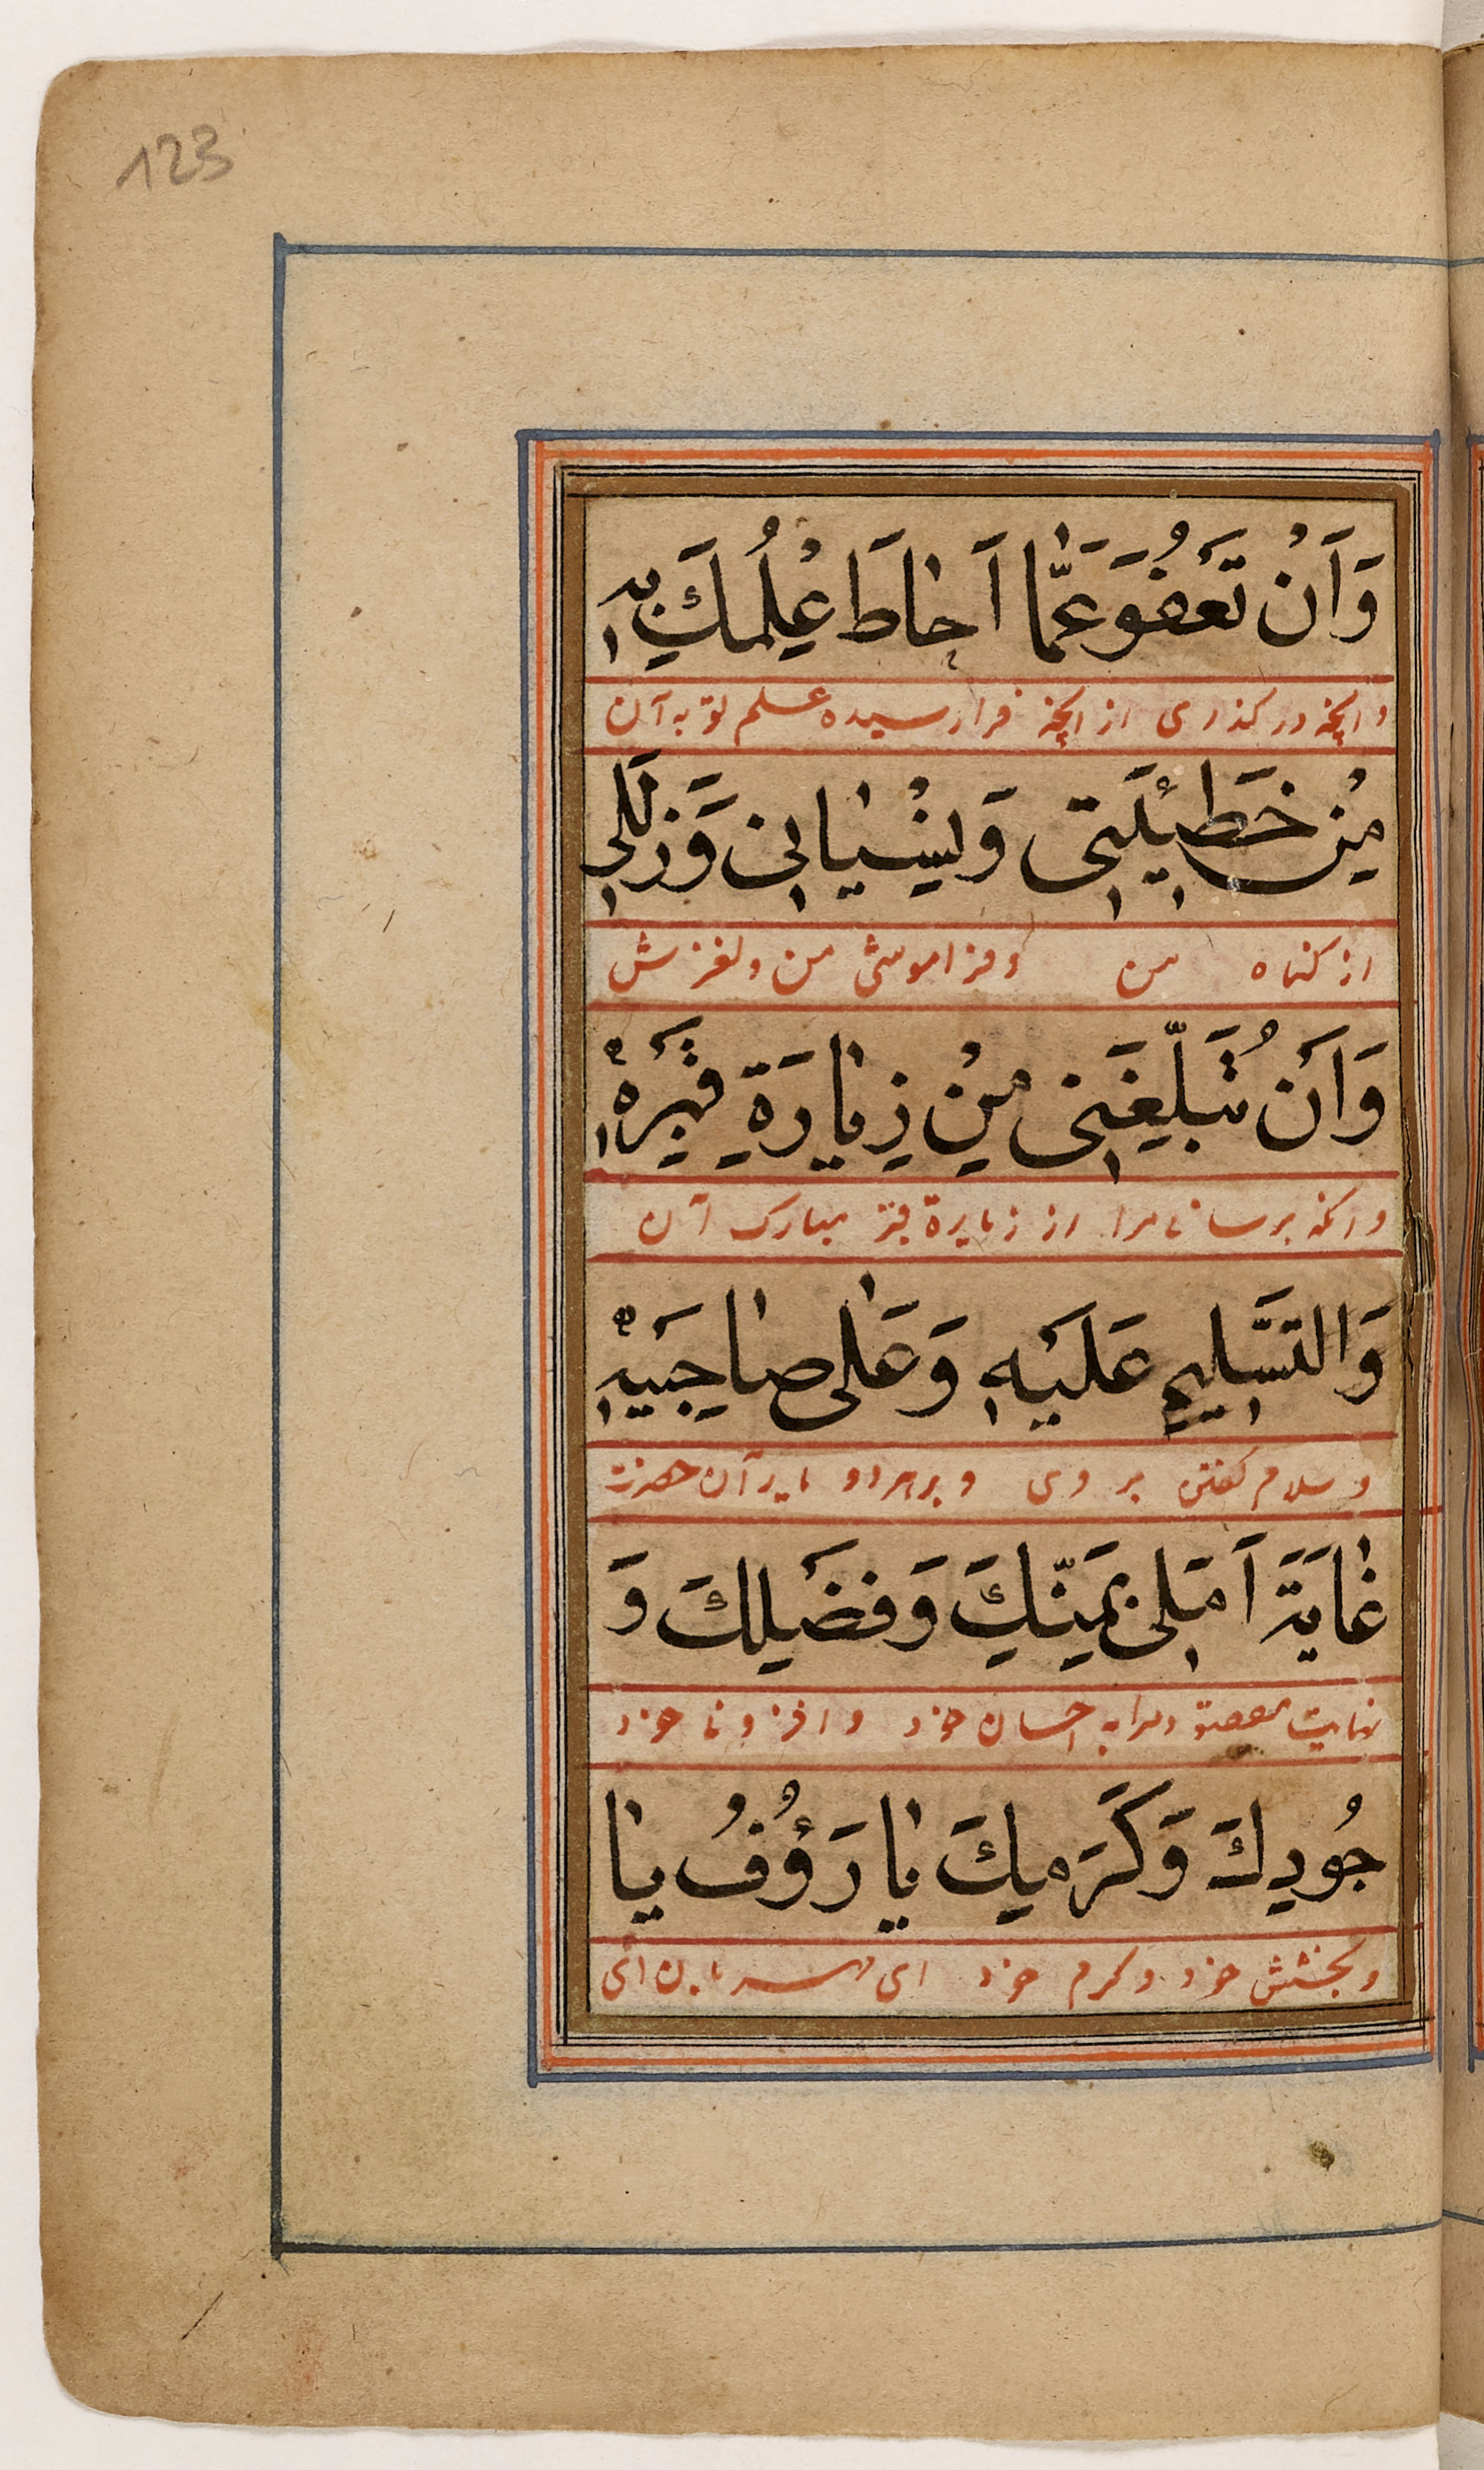 123
وَاَنْ تَعْفُوَ عَمَّا اَحَاطَ عِلْمُكَ بِهٖ
وانکه در کذری از آنچه فرا رسیده علم تو به آن
مِنْ خَطٖيئَتٖى وَنِسْيَانٖى وَزَلَلٖى
از کناه من وفراموشی من ولغزش
وَاَنْ تُبَلِّغَنٖى مِنْ زِيَارَةِ قَبْرِهٖ
وانکه برسانی مرا از زیارة قبر مبارک آن
وَالتَّسْلٖيمِ عَلَيْهِ وَعَلٰى صَاحِبَيْهِ
وسلام کفتن بر وی و بر هر دو یار آن حضرت
غَايَةَ اَمَلٖى بِمَنِّكَ وَفَضْلِكَ وَ
نهایت مقصود مرا به احسان خود و افزونی خود
جُودِكَ وَكَرَمِكَ يَا رَؤُفُ يَا
وبخشش خود وکرم خود ای مهربان ای